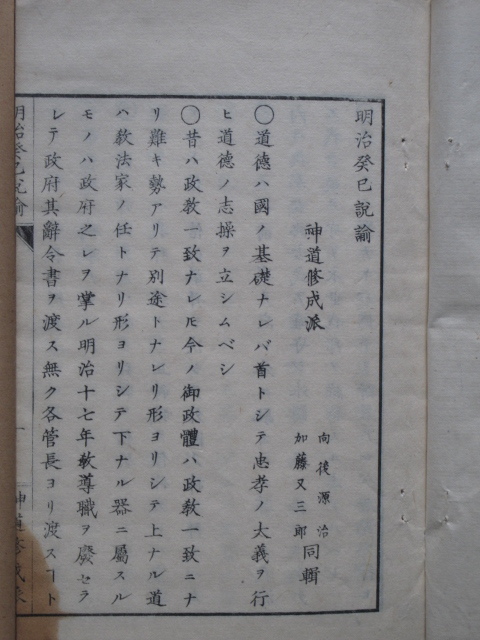 明治癸巳説諭
神道修成派
向後源治
加藤又三郎
同輯
◯道徳ハ國ノ基礎ナレバ首トシテ忠孝ノ大義ヲ行
ヒ道徳ノ志操ヲ立シムベシ
◯昔ハ政教一致ナレ𪜈今ノ御政體ハ政教一致ニナ
リ難キ勢アリテ別途トナレリ形ヨリシテ上ナル道
ハ教法家ノ任トナリ形ヨリシテ下ナル器ニ屬スル
モノハ政府之レヲ掌ル明治十七年教導職ヲ廢セラ
レテ政府其辭令書ヲ渡ス無ク各管長ヨリ渡スヿト
明治癸巳説諭
一
神道修成派